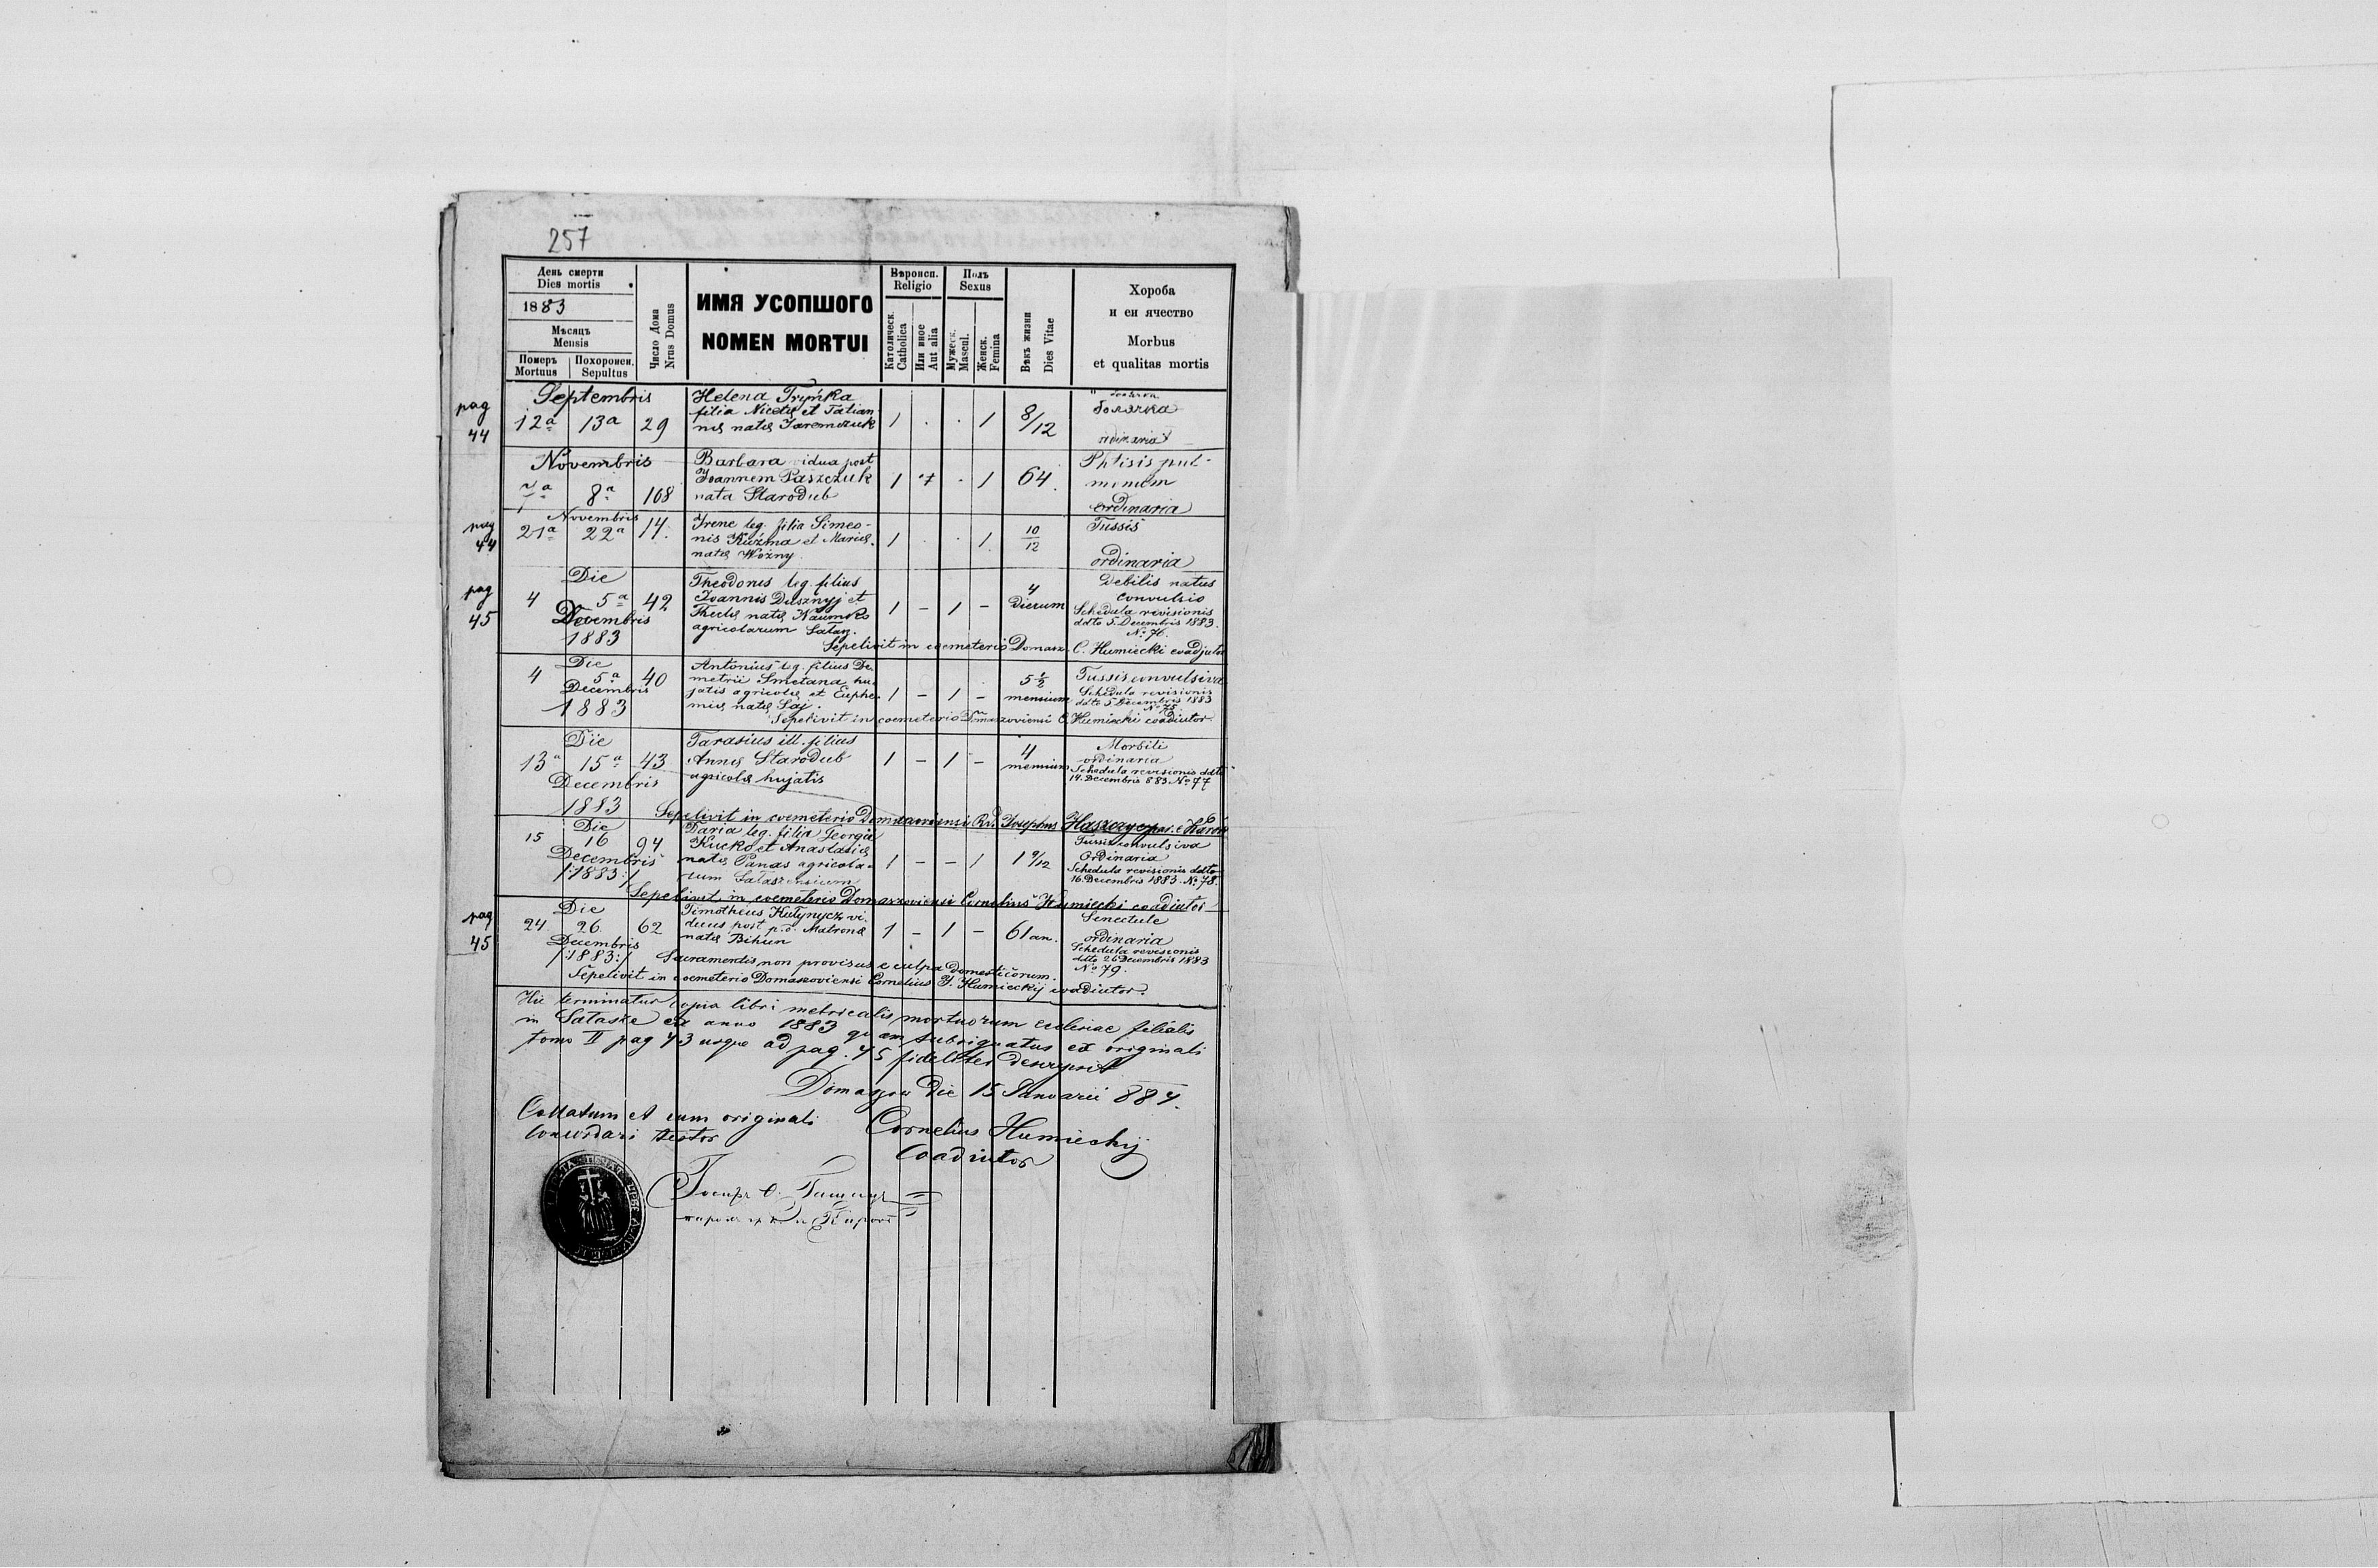 257
День смерти
Dies mortis
1883
Мѣсяць
Mensis
Померъ
Mortuus
Похоронен.
Sepultus
Число Дома
Nrus Domus
ИМЯ УСОПШОГО
NOMEN MORTUI
Вѣроисп.
Religio
Католическ.
Catholica
Или иное
Aut alia
Полъ
Sexus
Мужеск.
Mascul.
Женск.
Femina
Вѣкъ жизни
Dies Vitae
Хороба
и еи ячество
Morbus
et qualitas mortis
pag 44
Septembris
12a 13a 29
Helena Trymka
filia Nicetę et Tatian
nę natę Jaremczuk
1 . . 1 8/12
болячка
ordinaria
Novembris
7a 8a 108
Barbara vidua post
Joannem Paszczuk
nata Starodub
1 . 1 64
Phtisis pul-
monum
ordinaria
pag 44
Novembris
21a 22a 14.
Irene leg. filia Simeo-
nis Kuźma et Marię
natę Woźny
1 . . 1. 10/12
Tussis
ordinaria
pag 45
Die
4 5a 42
Decembris
1883
Theodorus leg. filius
Joannis Dusznyj et
Theclę natę Naumko
agricolarum Satasz.
1 – 1 – 4 dierum
Debilis natus
convulsio
Schedula revisionis
ddto 5. Decembris 1883.
No 76.
Sepelivit in coemeterio Domasz. C. Humiecki coadjutor
Die
4 5a 40
Decembris
1883
Antonius leg. filius De-
metrii Smetana hu-
jatis agricolę et Euphe-
mię natę Saj.
1 – 1 – 5 1/2 mensium
Tussis convulsiva
Schedula revisionis
ddto 5 Decembris 1883
No 75.
Sepelivit in coemeterio Domaszoviensi C. Humiecki coadiutor.
Die
13a 15a 43
Decembris
1883
Tarasius ill. filius
Annę Starodub
agricolę hujatis
1 – 1 – 4 mensium
Morbili
ordinaria
Schedula revisionis ddto
14. Decembris 883. No 77
Sepelivit in coemeterio Domaszoviensi Rd. Josephus Haszczyc
Die
15 16 94
Decembris
/:1883:/
Daria leg. filia Georgii
Kucko et Anastasię
natę Panas agricola-
rum Sataszensium
1 – – 1 1 9/12
Tussis convulsiva
Ordinaria
Schedula revisionis ddto
16. Decembris 1883. No. 78.
Sepelivit in coemeterio Domaszoviensi Cornelius Humiecki coadiutor
pag 45
Die
24 26. 62
Decembris
/:1883:/
Timotheus Hutynycz vi-
duus post p. d. Matronę
natę Bihun
1 – 1 – 61 an.
Senectute
ordinaria
Schedula revisionis
ddto 26 Decembris 1883
No 79.
Sacramentis non provisus e culpa domesticorum.
Sepelivit in coemeterio Domaszoviensi Cornelius J. Humieckij coadiutor.
Hic terminatur copia libri metricalis mortuorum ecclesiae filialis
in Satasze ex anno 1883 quam subsignatus ex originali
tomo II pag 43 usque ad pag. 45 fideliter descripsit
Domaszow die 15 Januarii 884.
Collatum et cum originali
concordari testor
Cornelius Humieckij
Coadiutor